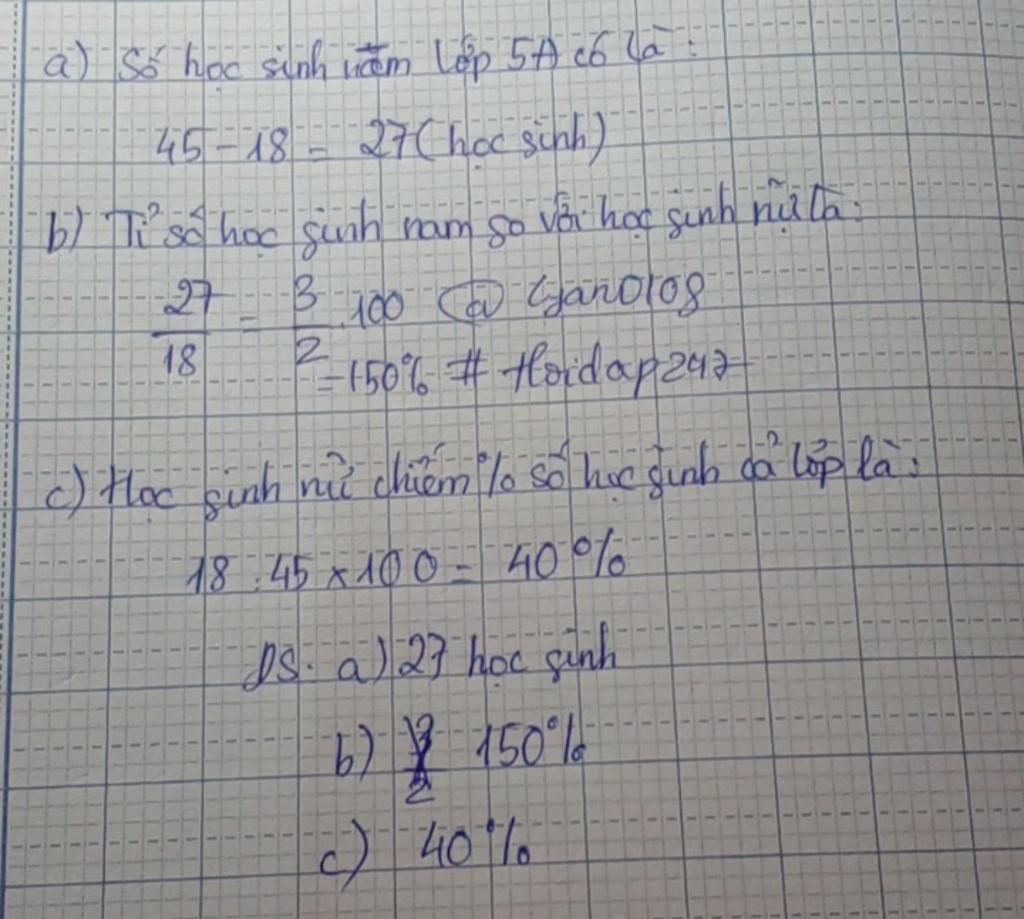 a) Số học sinh năm lớp 5A có là:
45 - 18 = 27 (học sinh)
b) Tỉ số học sinh nam so với học sinh nữ là:
27/18 = 3/2 .100 @ Gano108
= 150% # Hoidap247
c) Học sinh nữ chiếm % số học sinh cả lớp là:
18 : 45 × 100 = 40%
ĐS: a) 27 học sinh
b) 150%
c) 40%